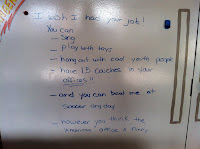 I wish I had your job!
You can
- Sing
- Play with toys
- hang out with cool youth people
- have 15 couches in your offices"
- and you can beat me at
soccer any day
- however you think the
office is funny